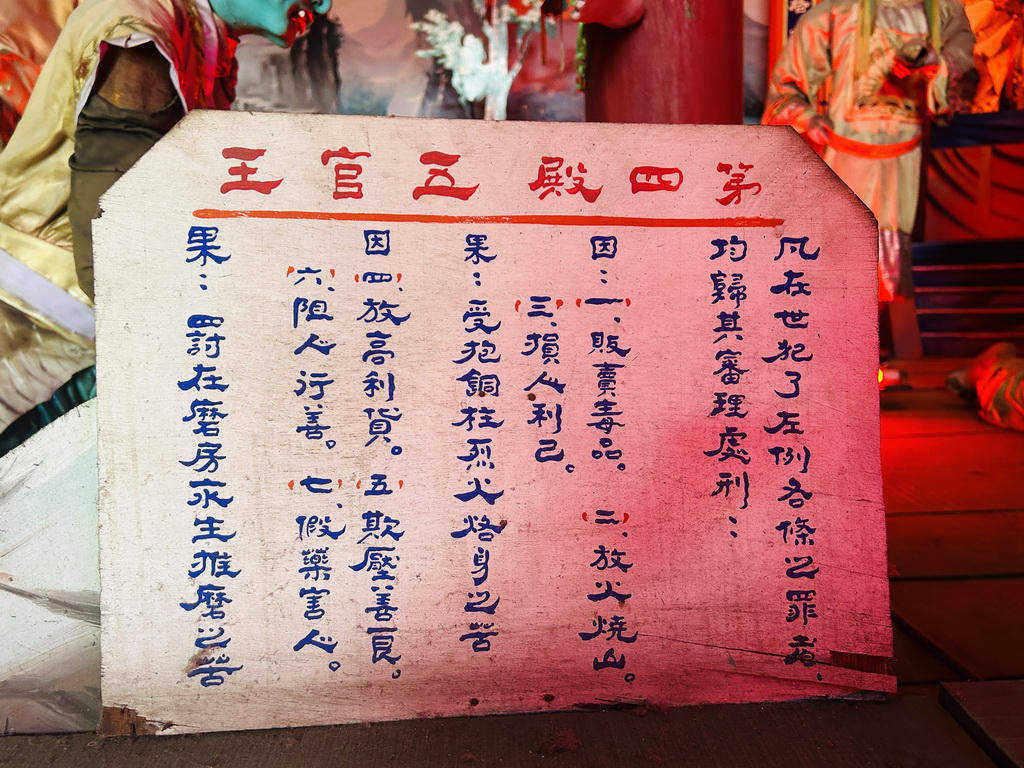 第四殿 五官王
凡在世犯了左例各條之罪者、
均歸其審理處刑：
因：(一)、販賣毒品。(二)、放火燒山。
(三)、損人利己。
果：受抱銅柱烈火烙身之苦
因(四)、放高利貨。(五)、欺壓善良。
(六)、阻人行善。(七)、假藥害人。
果：罰在磨房永生推磨之苦